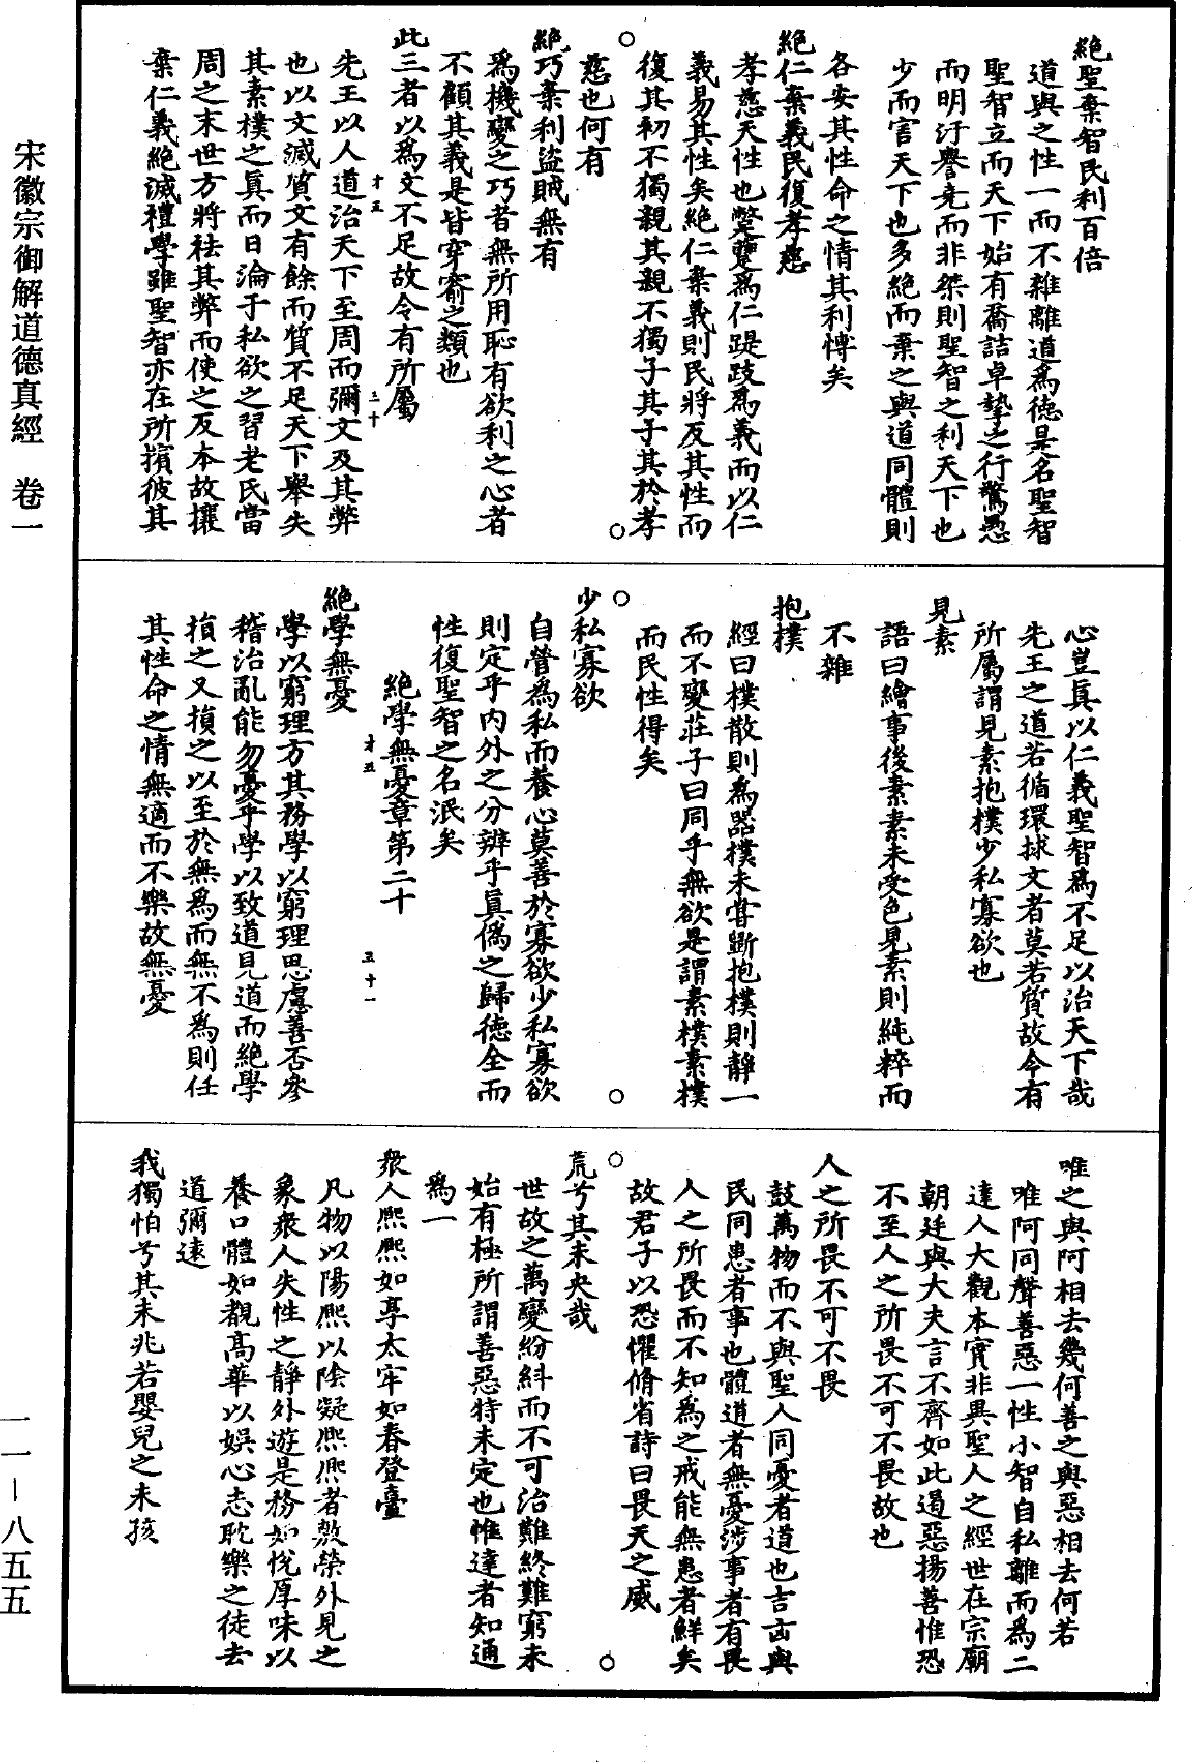 宋徽宗御解道德真經　卷一
絕聖棄智民利百倍
道與之性一而不雜離道為德是名聖智
聖智立而天下始有喬詰卓摯之行驚愚
而明汙譽堯而非桀則聖智之利天下也
少而害天下也多絕而棄之與道同體則
各安其性命之情其利博矣
絕仁棄義民復孝慈
孝慈天性也蹩躠為仁踶跂為義而以仁
義易其性矣絕仁棄義則民將反其性而
復其初不獨親其親不獨子其子其於孝
慈也何有
絕巧棄利盜賊無有
為機變之巧者無所用恥有欲利之心者
不顧其義是皆穿窬之類也
此三者以為文不足故令有所屬
才五　三十
先王以人道治天下至周而彌文及其弊
也以文滅質文有餘而質不足天下舉失
其素樸之真而日淪于私欲之習老氏當
周之末世方將祛其弊而使之反本故攘
棄仁義絕滅禮學雖聖智亦在所擯彼其
心豈真以仁義聖智為不足以治天下哉
先王之道若循環捄文者莫若質故令有
所屬謂見素抱樸少私寡欲也
見素
語曰繪事後素素未受色見素則純粹而
不雜
抱樸
經曰樸散則為器樸未嘗斲抱樸則靜一
而不變莊子曰同乎無欲是謂素樸素樸
而民性得矣
少私寡欲
自營為私而養心莫善於寡欲少私寡欲
則定乎內外之分辨乎真偽之歸德全而
性復聖智之名泯矣
絕學無憂章第二十
才五　五十一
絕學無憂
學以窮理方其務學以窮理思慮善否參
稽治亂能勿憂乎學以致道見道而絕學
損之又損之以至於無為而無不為則任
其性命之情無適而不樂故無憂
唯之與阿相去幾何善之與惡相去何若
唯阿同聲善惡一性小智自私離而為二
達人大觀本實非異聖人之經世在宗廟
朝廷與大夫言不齊如此遏惡揚善惟恐
不至人之所畏不可不畏故也
人之所畏不可不畏
鼓萬物而不與聖人同憂者道也吉凶與
民同患者事也體道者無憂涉事者有畏
人之所畏而不知為之戒能無患者鮮矣
故君子以恐懼脩省詩曰畏天之威
荒兮其未央哉
世故之萬變紛糾而不可治難終難窮未
始有極所謂善惡特未定也惟達者知通
為一
眾人熙熙如享太牢如春登臺
凡物以陽熙以陰凝熙熙者敷榮外見之
象眾人失性之靜外遊是務如悅厚味以
養口體如觀高華以娛心志耽樂之徒去
道彌遠
我獨怕兮其未兆若嬰兒之未孩
一一－八五五